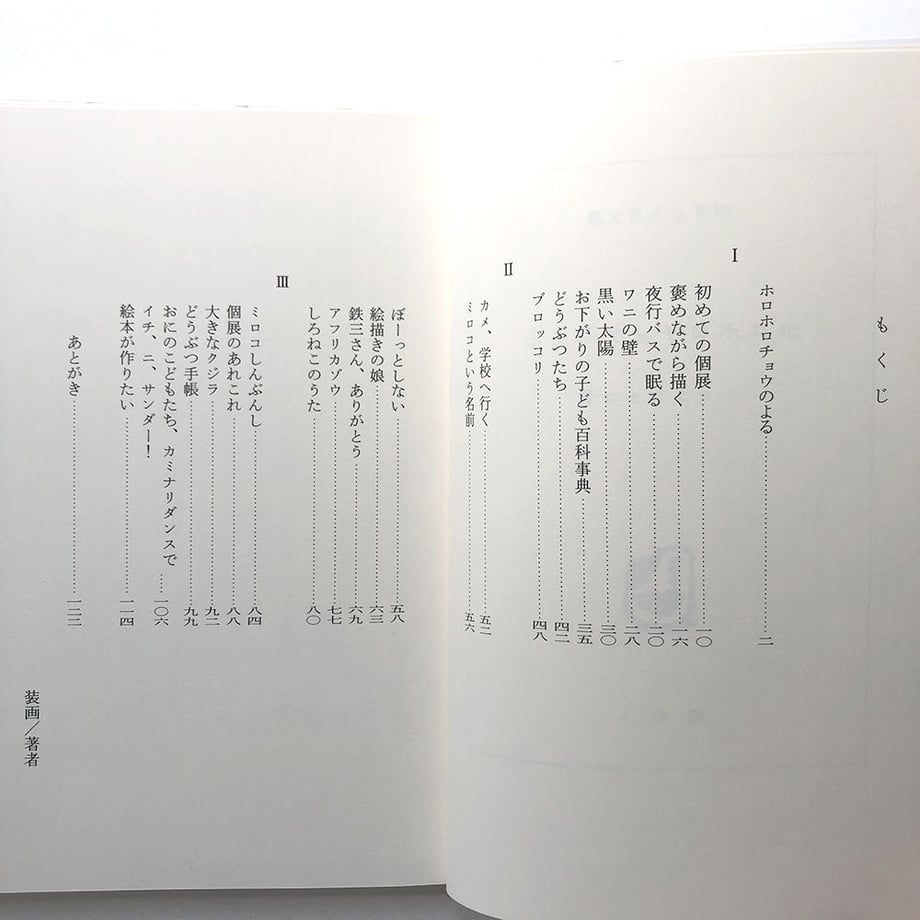 もくじ
ホロホロチョウのよる……二
Ⅰ
初めての個展……一〇
褒めながら描く……一六
夜行バスで眠る……二〇
ワニの壁……二八
黒い太陽……三〇
お下がりの子ども百科事典……三五
どうぶつたち……四二
ブロッコリ……四八
Ⅱ
カメ、学校へ行く……五二
ミロコという名前……五六
ぼーっとしない……五八
絵描きの娘……六三
鉄三さん、ありがとう……六九
アフリカゾウ……七七
しろねこのうた……八〇
Ⅲ
ミロコしんぶんし……八四
個展のあれこれ……八八
大きなクジラ……九二
どうぶつ手帳……九九
おにのこどもたち、カミナリダンスで
イチ、ニ、サンダー!……一〇六
絵本が作りたい……一一四
あとがき……一二二
装画／著者